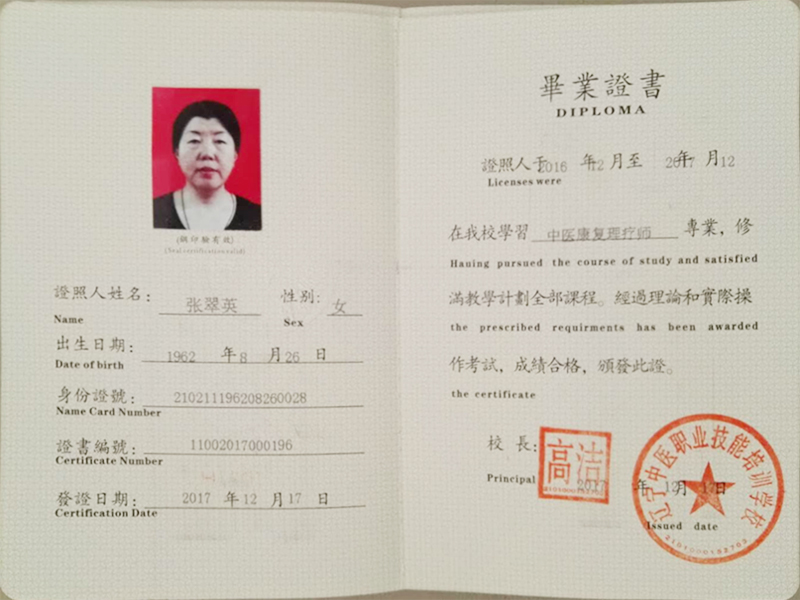 (鋼印驗有效)
(Seal certification valid)
證照人姓名: 张翠英 性别: 女
Name Sex
出生日期: 1962 年 8 月 26 日
Date of birth
身份證號: 210211196208260028
Name Card Number
證書編號: 11002017000196
Certificate Number
發證日期: 2017 年 12 月 17 日
Certification Date
畢業證書
DIPLOMA
證照人于 2016 年 12 月至 2017 年 12 月
Licenses were
在我校學習 中医康复理疗师 專業，修
Hauing pursued the course of study and satisfied
滿教學計劃全部課程。經過理論和實際操
the prescribed requirments has been awarded
作考試，成績合格，頒發此證。
the certificate
校長: 高洁
Principal
2017 年 12 月 17 日
Issued date
辽宁中医职业技能培训学校